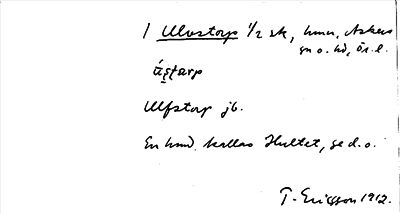 1 Ulvstorp 1/2 sk, hmn, Askers
sn o. hd, Ör. l.
Ulfstorp jb.
En hmd. kallas Hultet, se d. o.
T. Ericsson 1912.